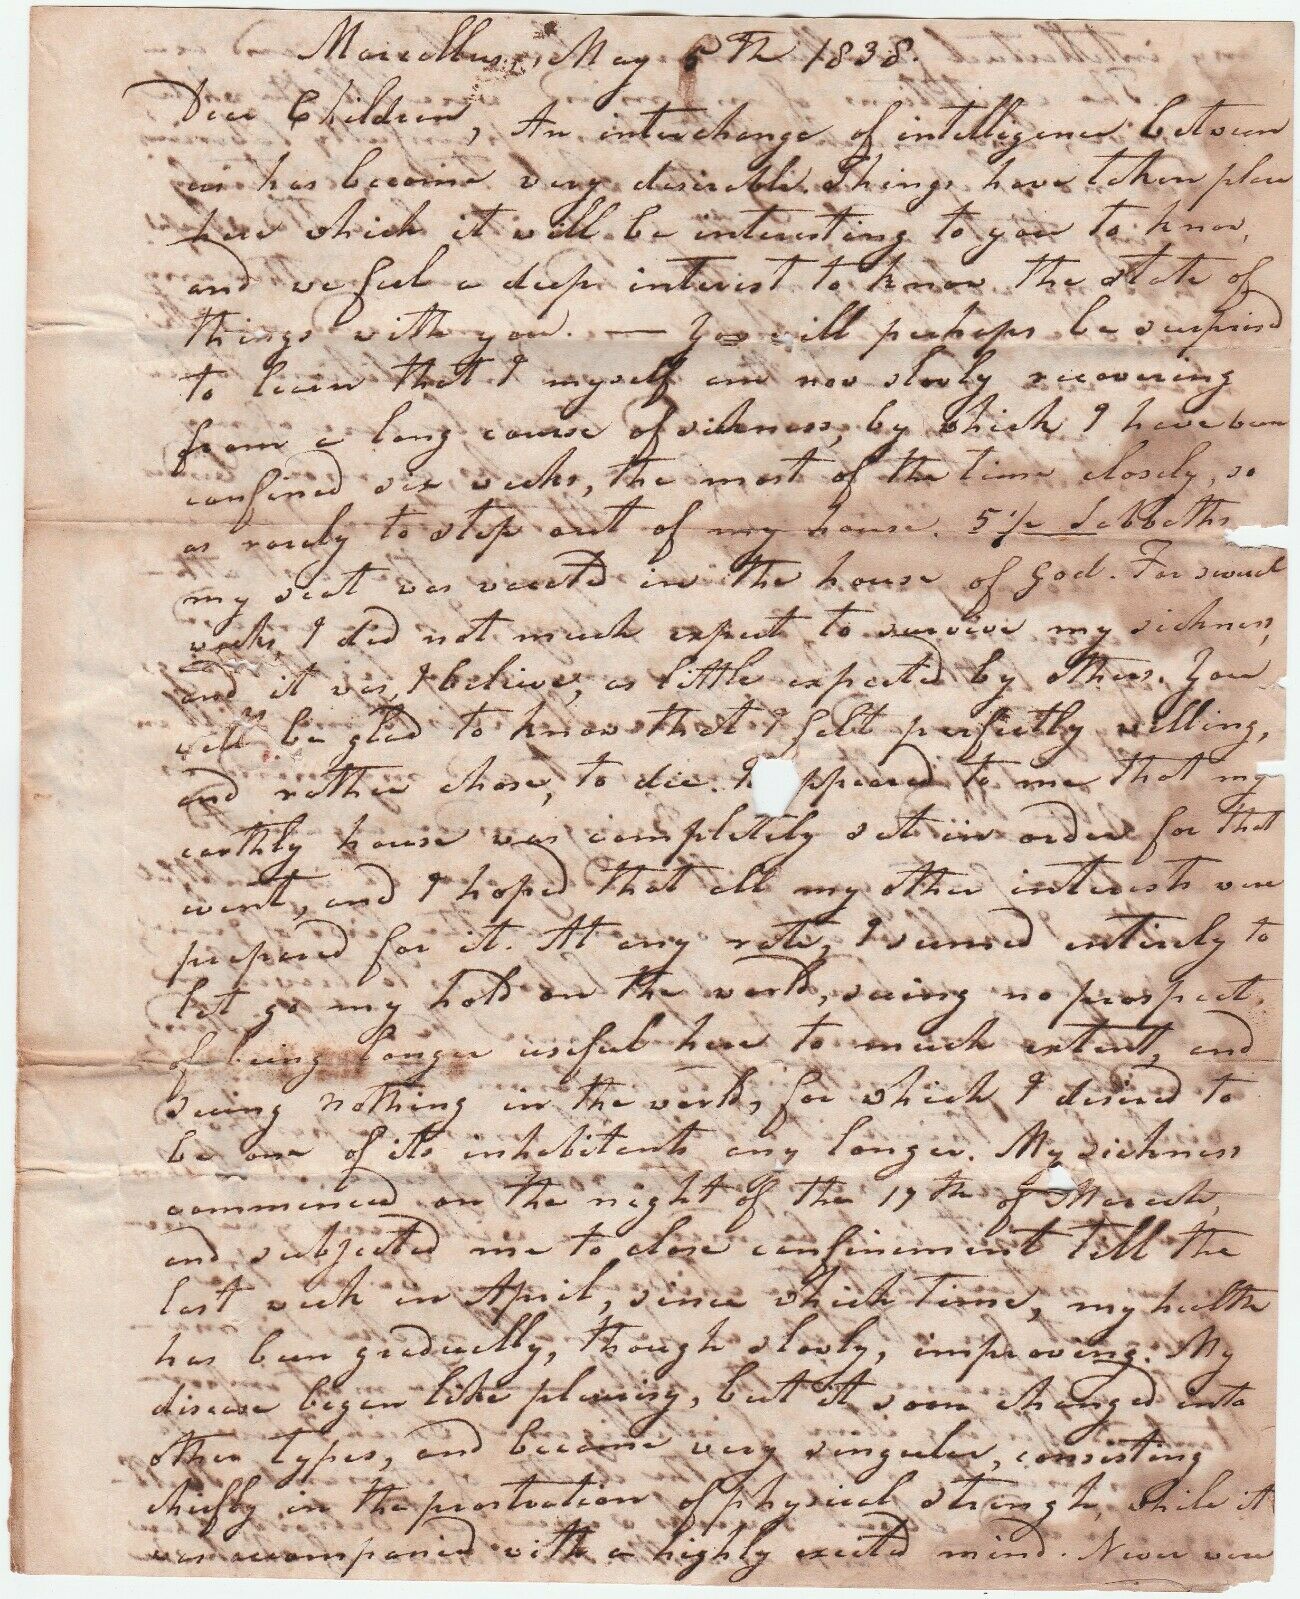 Marcellus, May 5th 1838.
Dear Children, An interchange of intelligence between
us has become very desirable. Things have taken place
here which it will be interesting to you to know,
and we feel a deep interest to know the state of
things with you. — You will perhaps be surprised
to learn that I myself am now slowly recovering
from a long course of sickness, by which I have been
confined six weeks, the most of the time closely, so
as rarely to step out of my house. 5 Sabbaths
my seat was vacated in the house of God. For several
weeks, I did not much expect to survive my sickness,
and it was, I believe, as little expected by others. You
will be glad to know that I felt perfectly willing,
and rather chose, to die. It appeared to me that my
earthly house was completely set in order for that
event, and I hoped that all my other interests were
prepared for it. At any rate, I seemed entirely to
let go my hold on the world, seeing no prospect
of being longer useful here to much extent, and
seeing nothing in the world, for which I desired to
be one of its inhabitants any longer. My sickness
commenced on the night of the 17th of March,
and subjected me to close confinement till the
last week in April, since which time, my health
has been gradually, though slowly, improving. My
disease began like pleurisy, but it soon changed into
other types, and became very singular, consisting
chiefly in the prostration of physical strength, while it
was accompanied with a highly excited mind. Never were